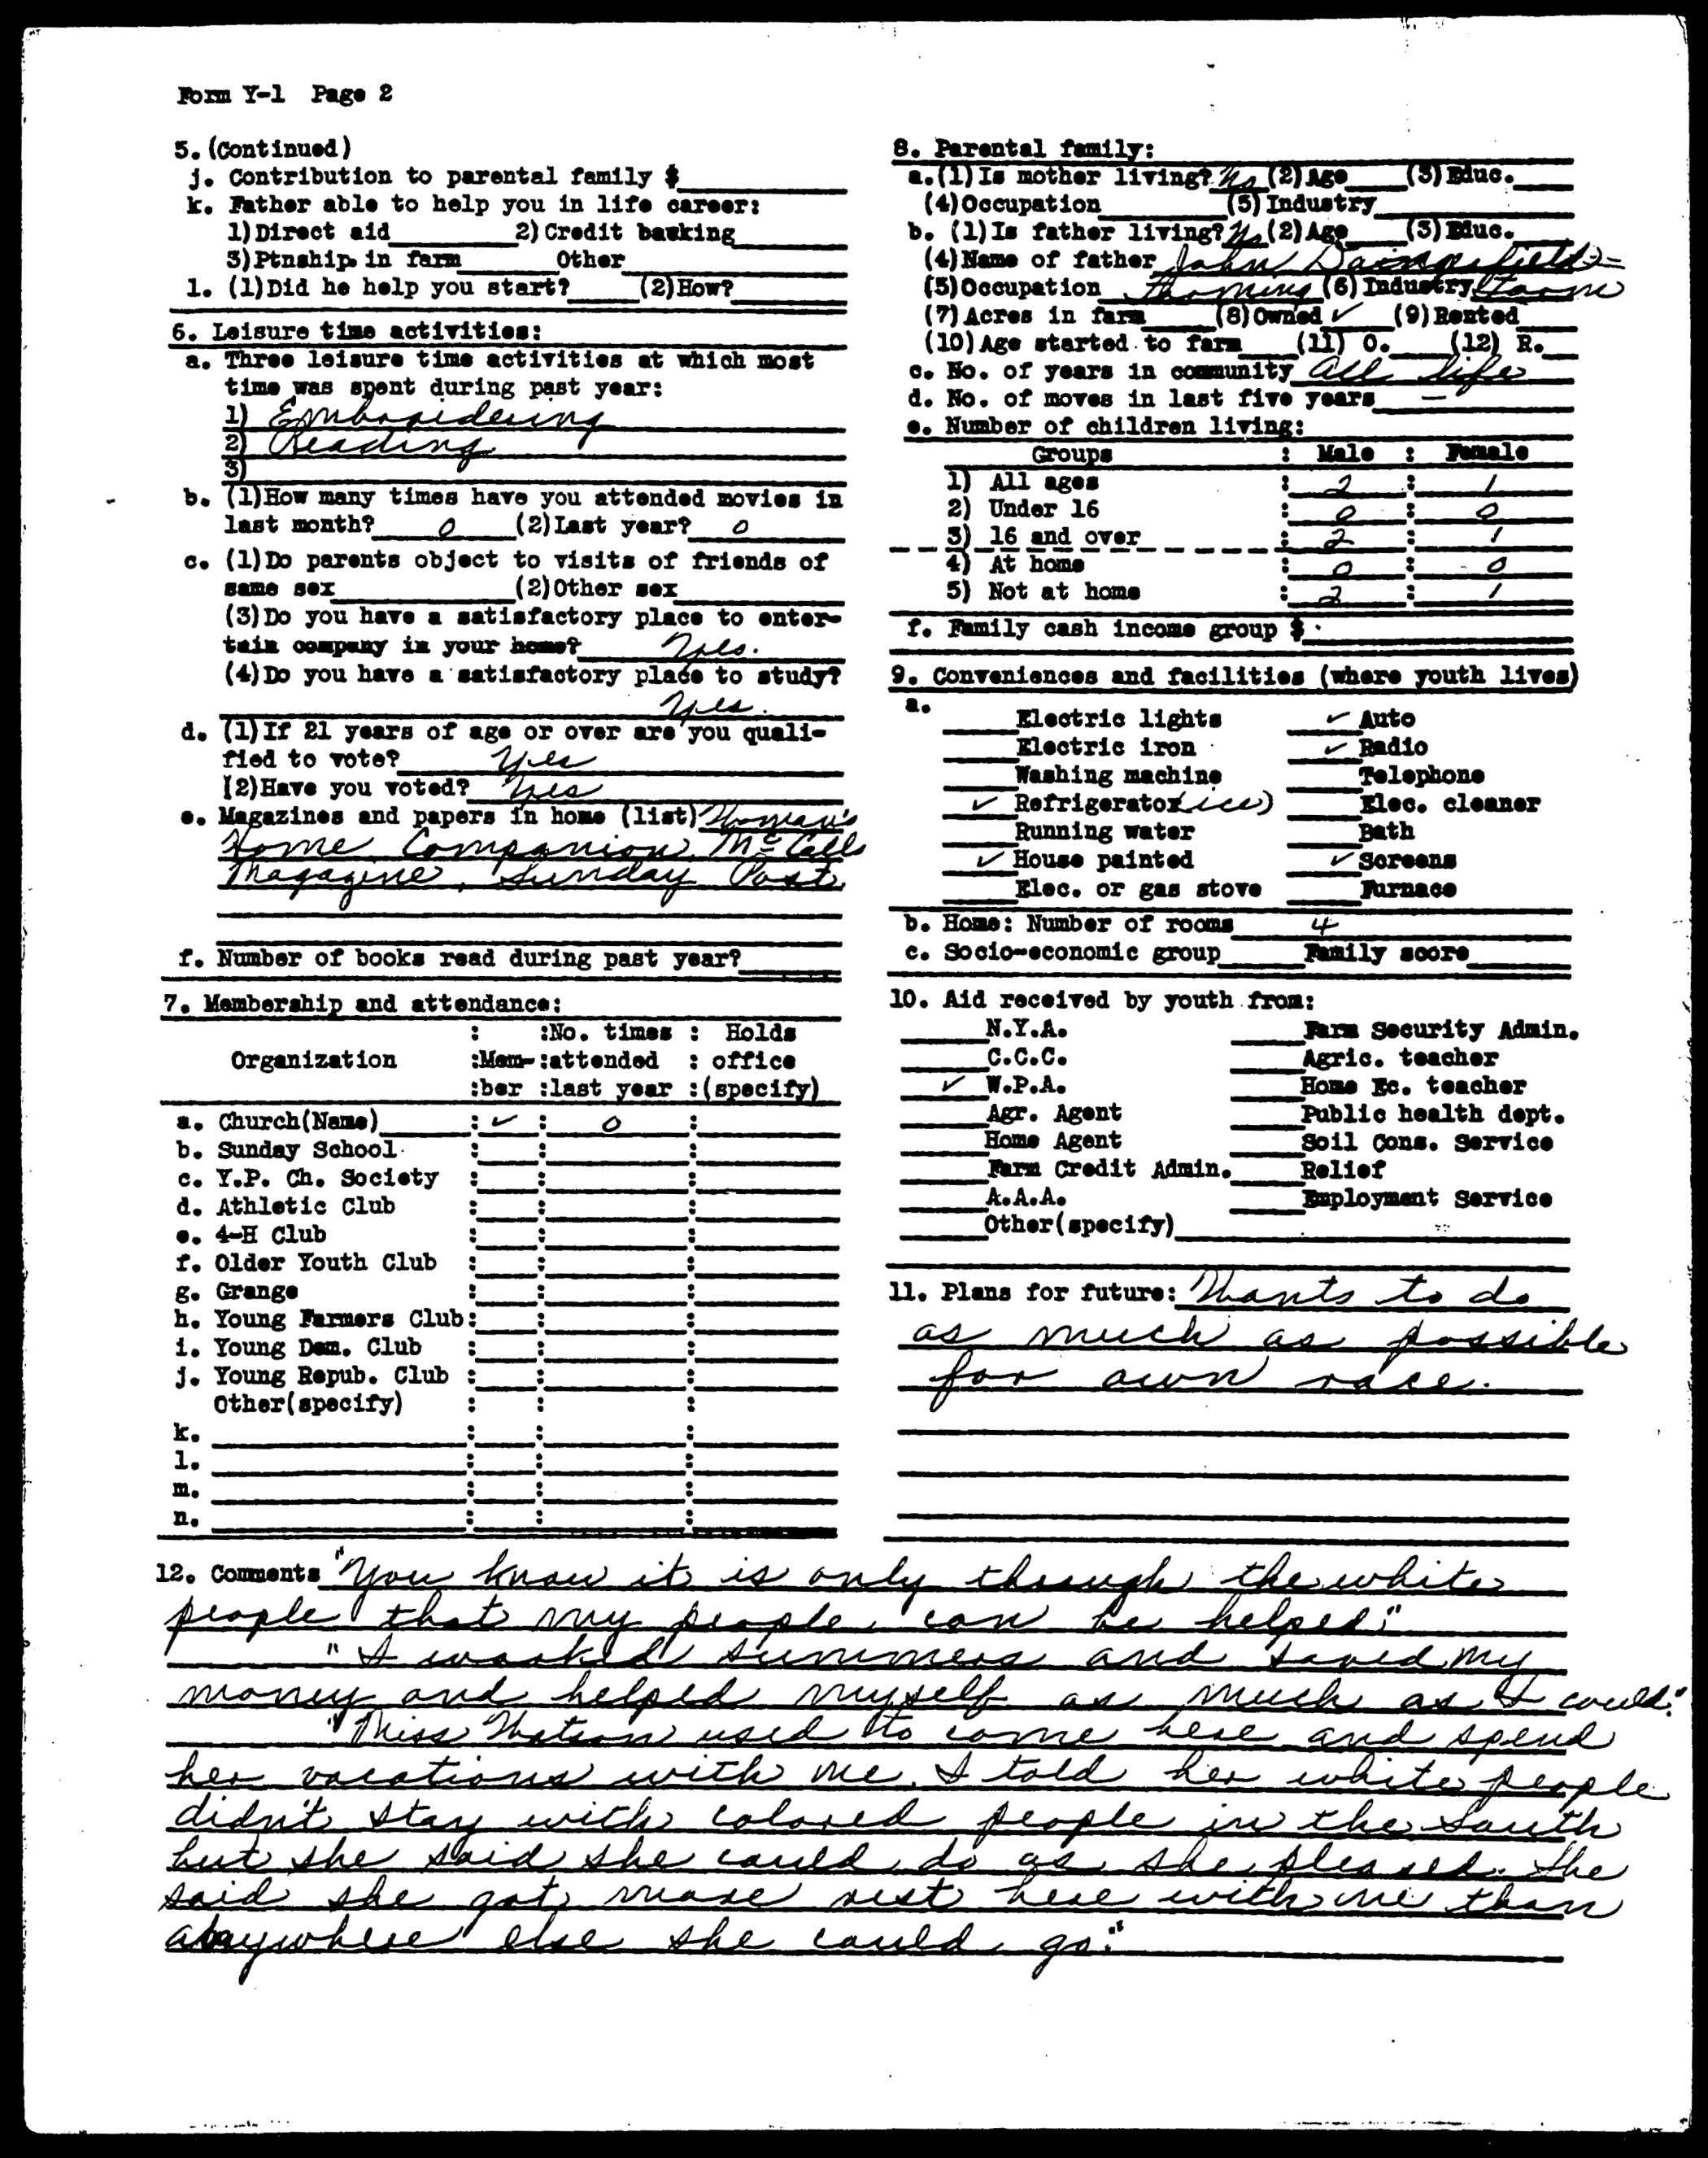 Form Y-1 Page 2
5. (Continued)
j. Contribution to parental family $
k. Father able to help you in life career:
1) Direct aid 2) Credit backing
3) Ptnship. in farm Other
l. (1) Did he help you start? (2) How?
6. Leisure time activities:
a. Three leisure time activities at which most
time was spent during past year:
1) Embroidering
2) Reading
3)
b. (1) How many times have you attended movies in
last month? 0 (2) Last year? 0
c. (1) Do parents object to visits of friends of
same sex (2) Other sex
(3) Do you have a satisfactory place to enter-
tain company in your home? Yes.
(4) Do you have a satisfactory place to study?
Yes.
d. (1) If 21 years of age or over are you quali-
fied to vote? Yes
(2) Have you voted? Yes
e. Magazines and papers in home (list) Woman's
Home Companion, McCalls
Magazine, Sunday Post
f. Number of books read during past year?
7. Membership and attendance:
: :No. times : Holds
Organization :Mem-:attended : office
:ber :last year :(specify)
a. Church(Name) : ✓ : 0 :
b. Sunday School
c. Y.P. Ch. Society
d. Athletic Club
e. 4-H Club
f. Older Youth Club
g. Grange
h. Young Farmers Club
i. Young Dem. Club
j. Young Repub. Club
Other(specify)
k.
l.
m.
n.
8. Parental family:
a. (1) Is mother living? No (2) Age (3) Educ.
(4) Occupation (5) Industry
b. (1) Is father living? No (2) Age (3) Educ.
(4) Name of father John
(5) Occupation Farming (6) Industry Farm
(7) Acres in farm (8) Owned ✓ (9) Rented
(10) Age started to farm (11) O. (12) R.
c. No. of years in community all life
d. No. of moves in last five years –
e. Number of children living:
Groups : Male : Female
1) All ages : 2 : 1
2) Under 16 : 0 : 0
3) 16 and over : 2 : 1
4) At home : 0 : 0
5) Not at home : 2 : 1
f. Family cash income group $
9. Conveniences and facilities (where youth lives)
a.
Electric lights ✓ Auto
Electric iron ✓ Radio
Washing machine Telephone
✓ Refrigerator (ice) Elec. cleaner
Running water Bath
✓ House painted ✓ Screens
Elec. or gas stove Furnace
b. Home: Number of rooms 4
c. Socio-economic group Family score
10. Aid received by youth from:
N.Y.A. Farm Security Admin.
C.C.C. Agric. teacher
✓ W.P.A. Home Ec. teacher
Agr. Agent Public health dept.
Home Agent Soil Cons. Service
Farm Credit Admin. Relief
A.A.A. Employment Service
Other(specify)
11. Plans for future: Wants to do
as much as possible
for own race.
12. Comments "You know it is only through the white
people that my people can be helped."
"I worked summers and saved my
money and helped myself as much as I could."
"Miss Watson used to come here and spend
her vacations with me. I told her white people
didn't stay with colored people in the South
but she said she could do as she pleased. She
said she got more rest here with me than
anywhere else she could go."